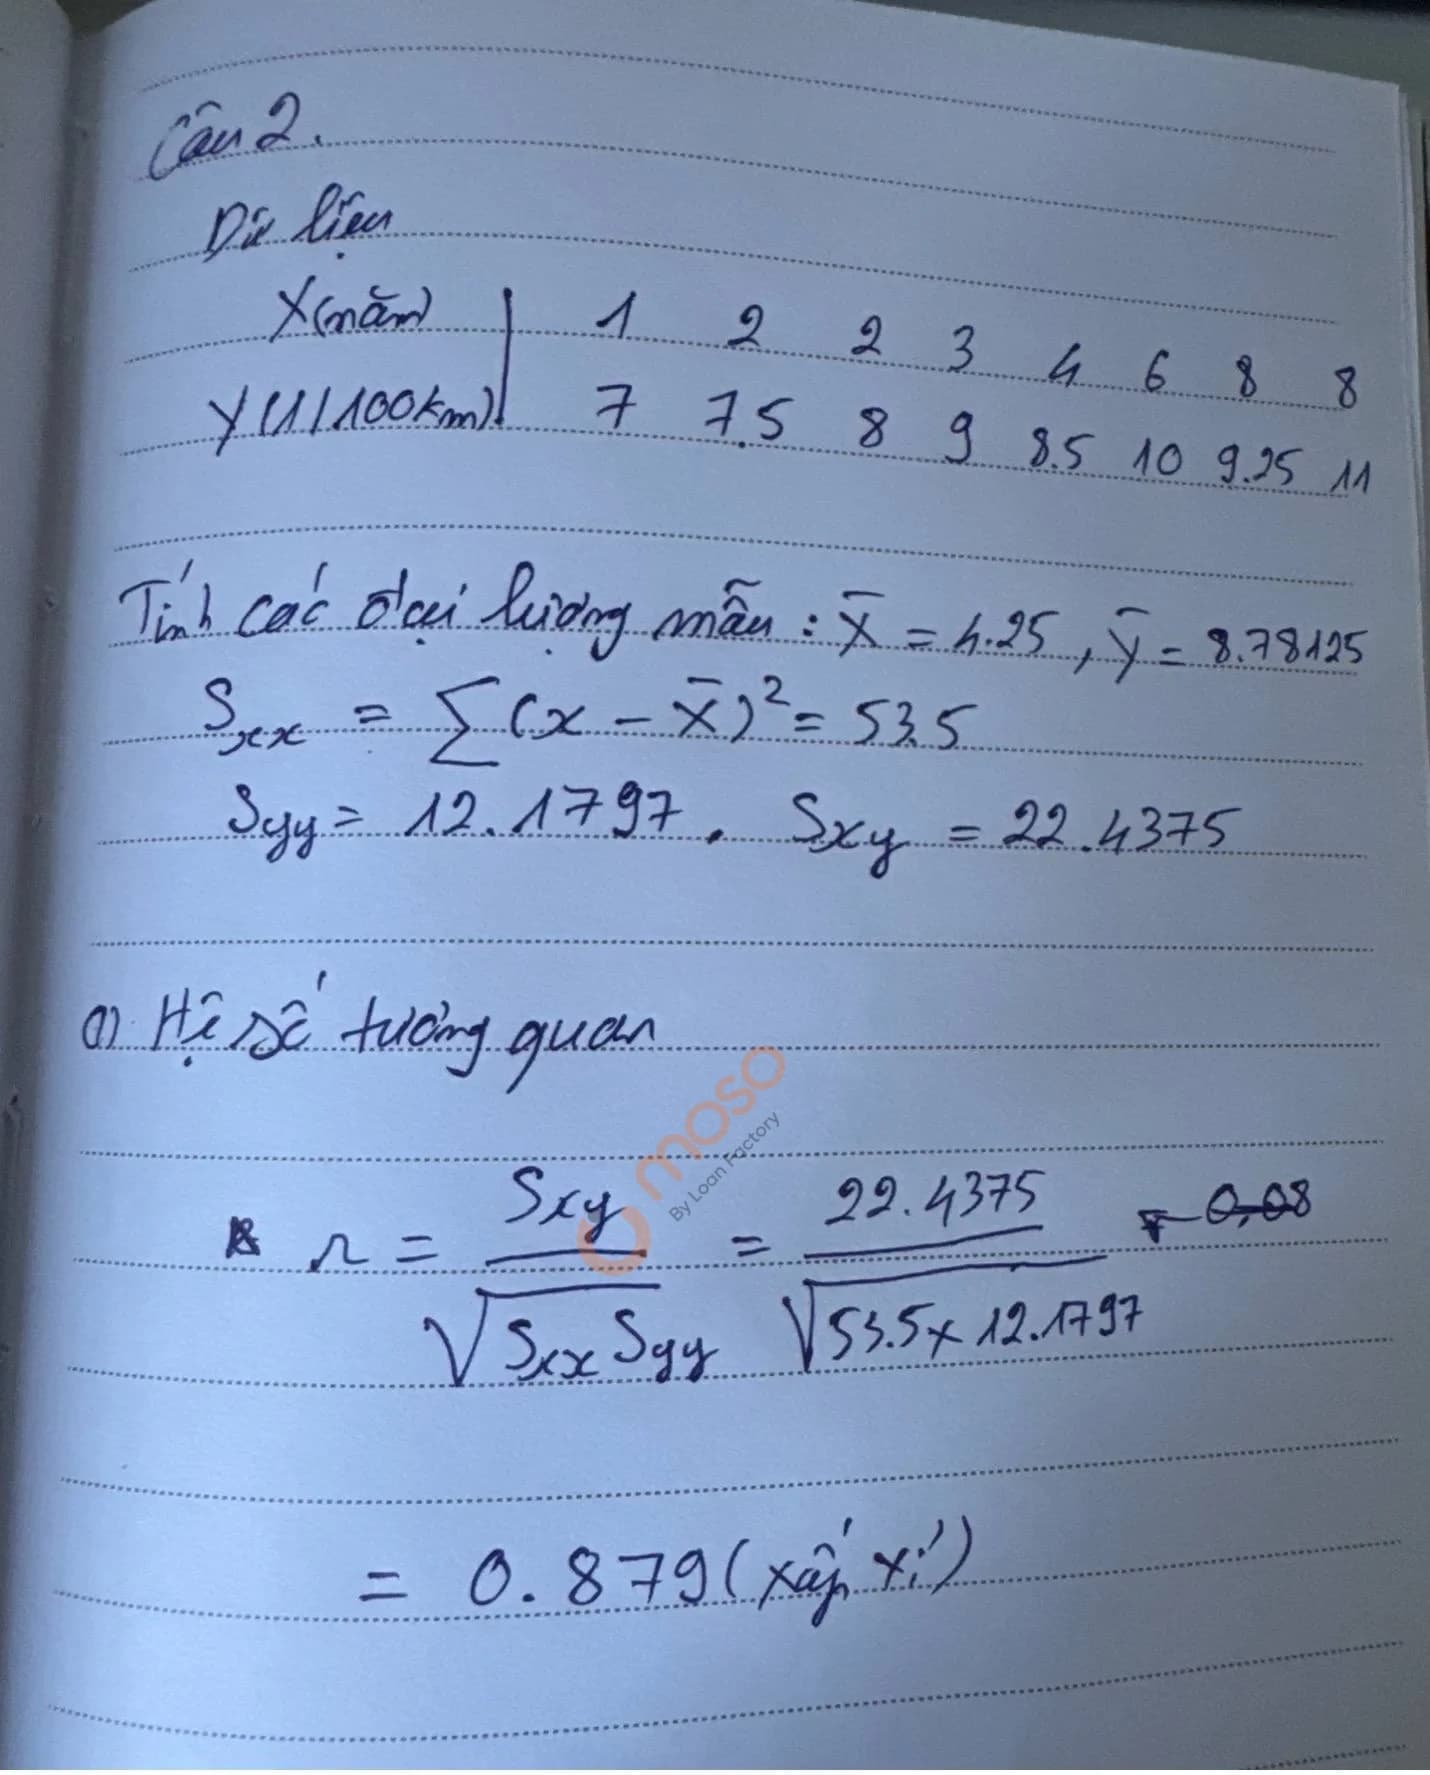 Câu 2.
Dữ liệu
X(năm) | 1 2 2 3 4 6 8 8
Y(1/100km) | 7 7.5 8 9 8.5 10 9.25 11
Tính các đại lượng mẫu : X̄ = 4.25, Ȳ = 8.78125
Sxx = ∑(x - X̄)² = 53.5
Syy = 12.1797. Sxy = 22.4375
a) Hệ số tương quan
r = Sxy / √(Sxx Syy) = 22.4375 / √(53.5 x 12.1797)
= 0.879 (xấp xỉ)
moso
By Loan Factory